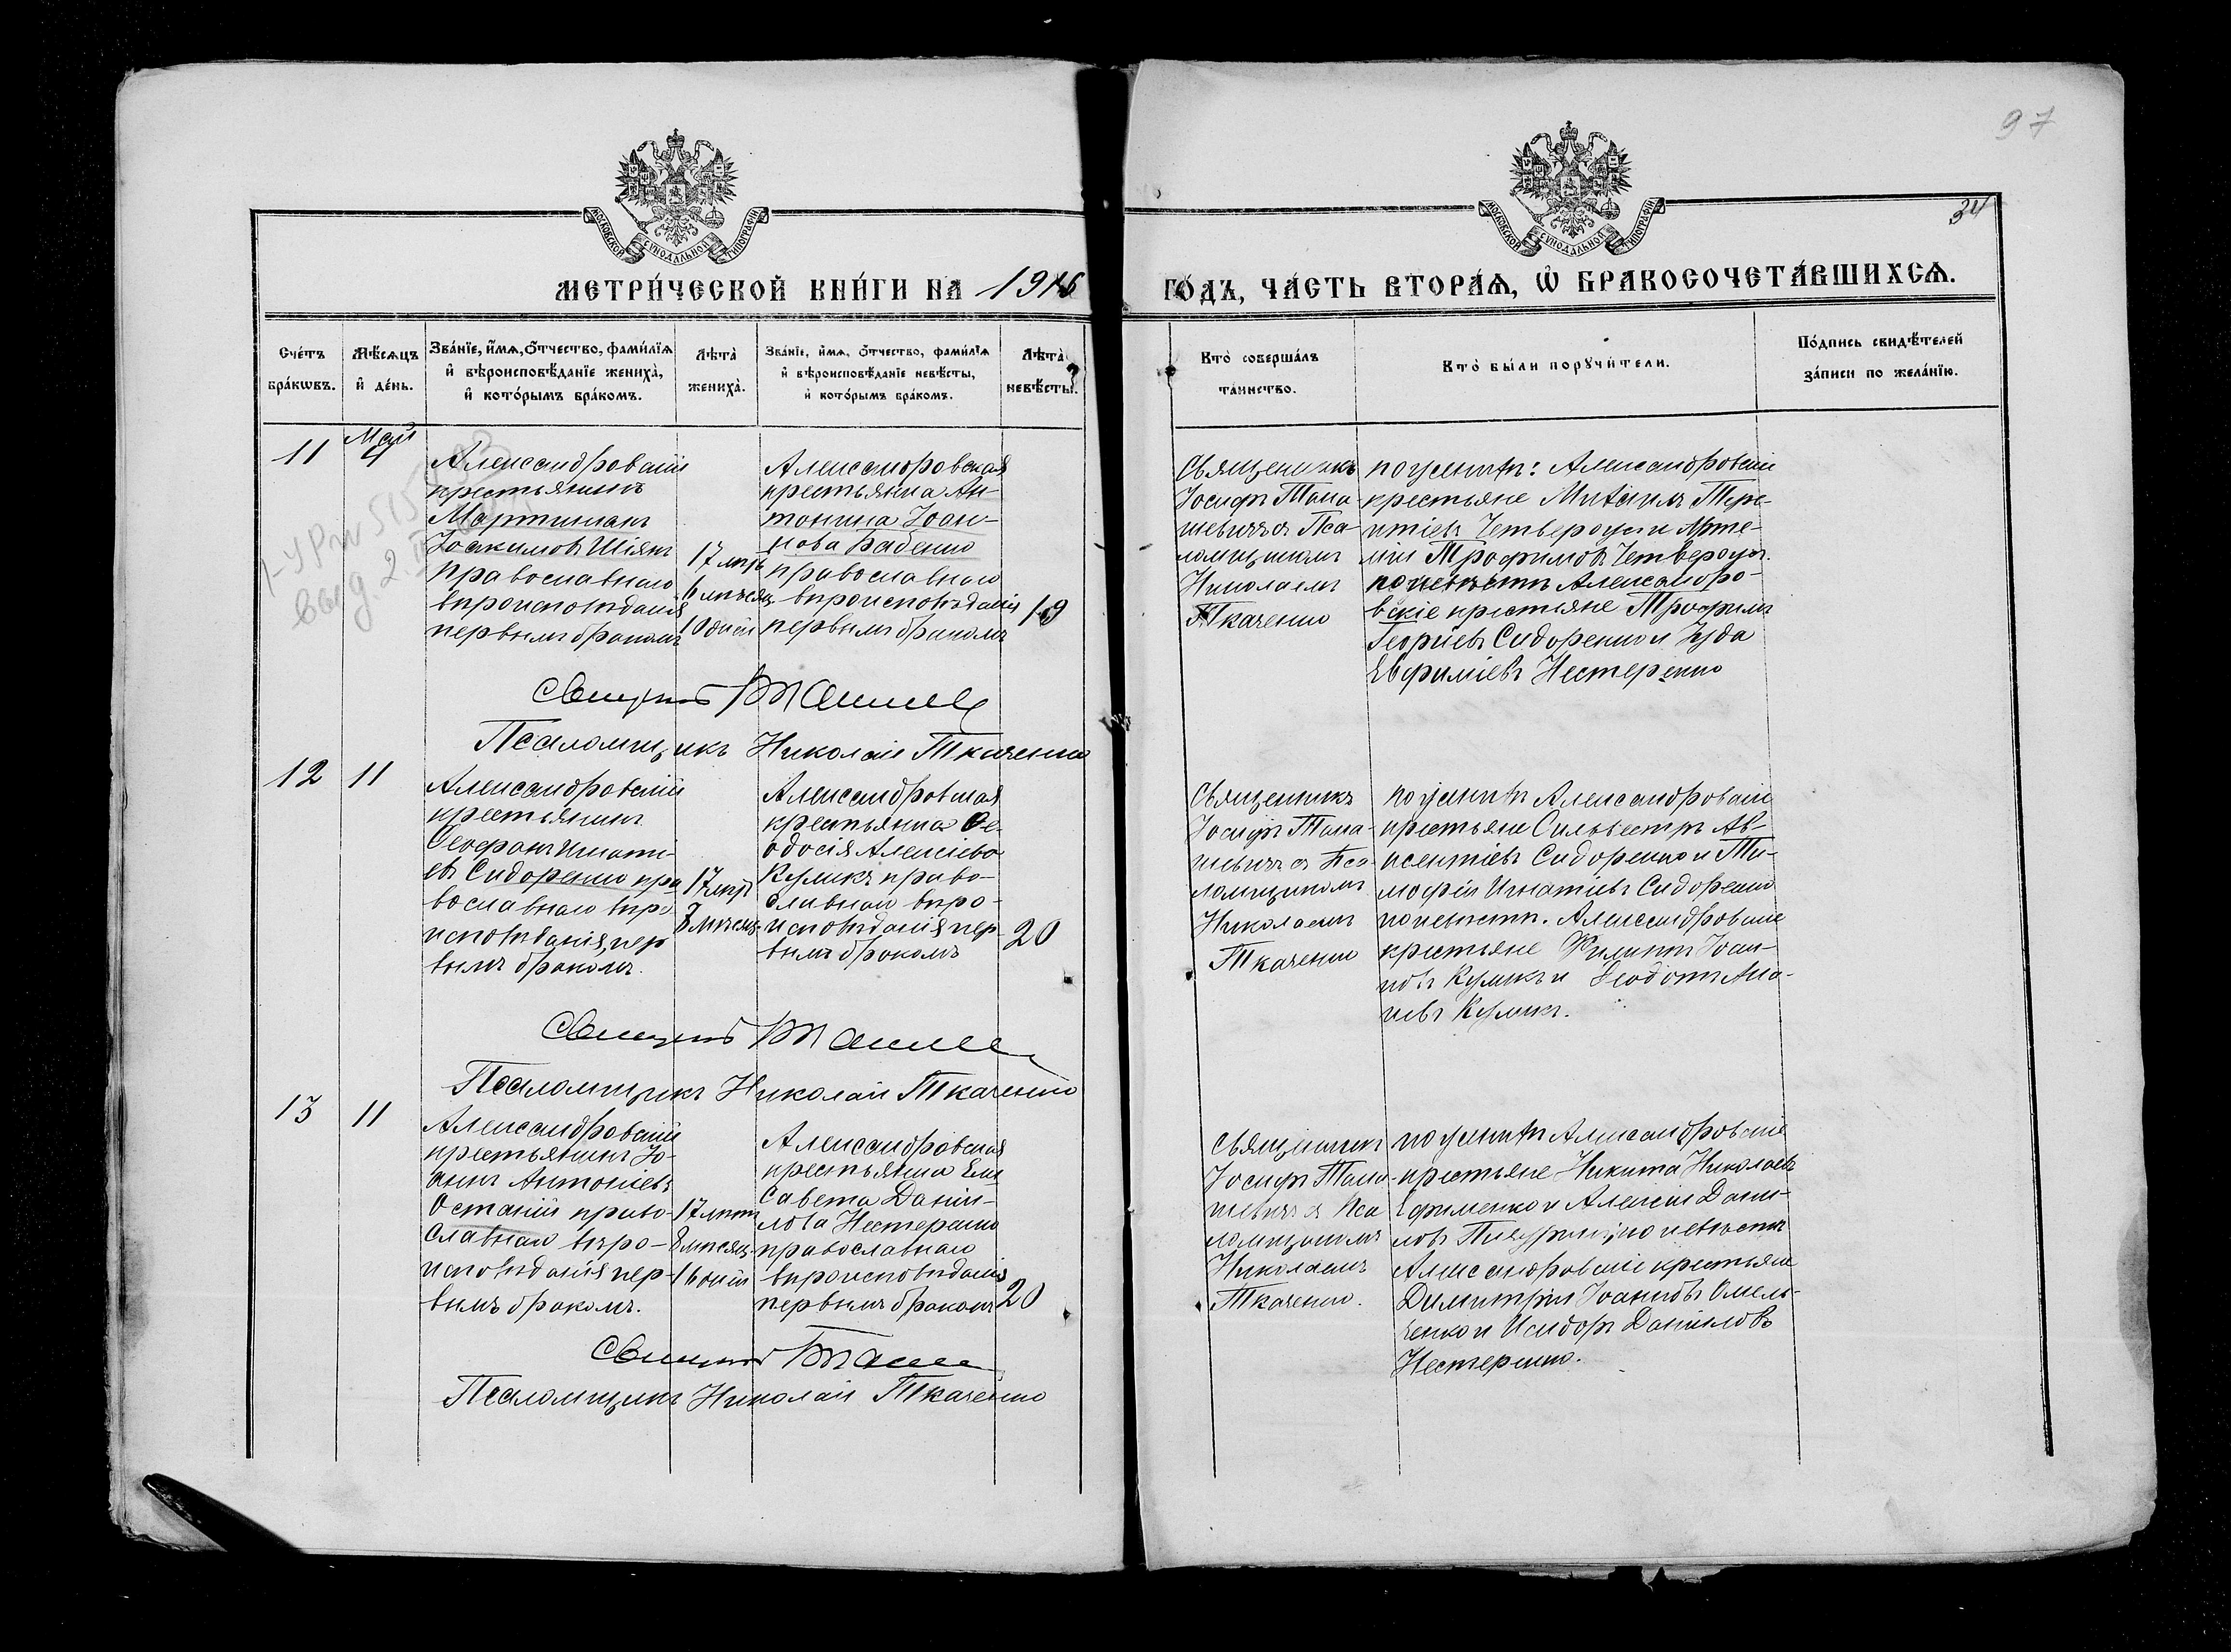 97
34
МОСКОВСКОЙ СУНОДАЛЬНОЙ ТИПОГРАФІИ
МОСКОВСКОЙ СУНОДАЛЬНОЙ ТИПОГРАФІИ
МЕТРИ́ЧЕСКОЙ КНИ́ГИ НА 1916
ГО́ДЪ, ЧА́СТЬ ВТОРА́Ѧ, Ѽ БРАКОСОЧЕТА́ВШИХСѦ.
Сче́тъ бра́кѡвъ.
Мѣ́сѧцъ и҆ де́нь.
Зва́нїе, и҆́мѧ, ѻ҆́тчество, фами́лїѧ
и҆ вѣроисповѣ́данїе жениха̀,
и҆ кото́рымъ бра́комъ.
Лѣта̀ жениха̀.
Зва́нїе, и҆́мѧ, ѻ҆́тчество, фами́лїѧ
и҆ вѣроисповѣ́данїе невѣ́сты,
и҆ кото́рымъ бра́комъ.
Лѣта̀ невѣ́сты.
Кто̀ соверша́лъ
та́инство.
Кто̀ бы́ли порꙋчи́тели.
По́дпись свидѣ́телей
за́писи по жела́нїю.
11
Май
4
Александровскій
крестьянинъ
Мартиніанъ
Іоакимовъ Шіянъ
православнаго
вѣроисповѣданія
первымъ бракомъ
17 лѣтъ
6 мѣсяц.
10 дней
Александровская
крестьянка Ан-
тонина Іоан-
нова Бабенко
православнаго
вѣроисповѣданія
первымъ бракомъ
19
Священникъ
Іосифъ Тома-
шевичъ съ Пса-
ломщикомъ
Николаемъ
Ткаченко
по женихѣ: Александровскіе
крестьяне
Четвероус и Арте-
мій Трофимовъ Четвероус.
по невѣстѣ Александро-
вскіе крестьяне Трофимъ
Георгіевъ Сидоренко и Іуда
Евфиміевъ Нестеренко
Псаломщикъ Николай Ткаченко
12
11
Александровскій
крестьянинъ
Ѳеофанъ Игнаті-
евъ Сидоренко пра
вославнаго вѣро
исповѣданія, пер
вымъ бракомъ.
17 лѣтъ
8 мѣсяц.
Александровская
крестьянка Ѳе-
одосія Алексіева
Куликъ право-
славнаго вѣро-
исповѣданія пер
вымъ бракомъ
20
Священникъ
Іосифъ Тома-
шевичъ съ Пса-
ломщикомъ
Николаемъ
Ткаченко
по женихѣ Александровскіе
крестьяне Сильвестръ Ав-
ксентіевъ Сидоренко и Ти-
мофей Игнатіевъ Сидоренко
по невѣстѣ. Александровскіе
крестьяне Филиппъ Іоан-
новъ Куликъ и Ѳеодотъ
Куликъ.
Псаломщикъ Николай Ткаченко
13
11
Александровскій
крестьянинъ Іо-
аннъ Антоніевъ
Остапій право-
славнаго вѣро-
исповѣданія пер-
вымъ бракомъ.
17 лѣтъ
8 мѣсяц.
16 дней
Александровская
крестьянка Ели
савета Даніи-
лова Нестеренко
православнаго
вѣроисповѣданія
первымъ бракомъ
20
Священникъ
Іосифъ Тома-
шевичъ съ Пса
ломщикомъ
Николаемъ
Ткаченко.
по женихѣ Александровскіе
крестьяне Никита Николаевъ
Ефименко и Алексій Дани-
ловъ по невѣстѣ
Александровскіе крестьяне
Димитрій Іоанновъ Омель-
ченко и Исидоръ Даніиловъ
Нестеренко.
Псаломщикъ Николай Ткаченко